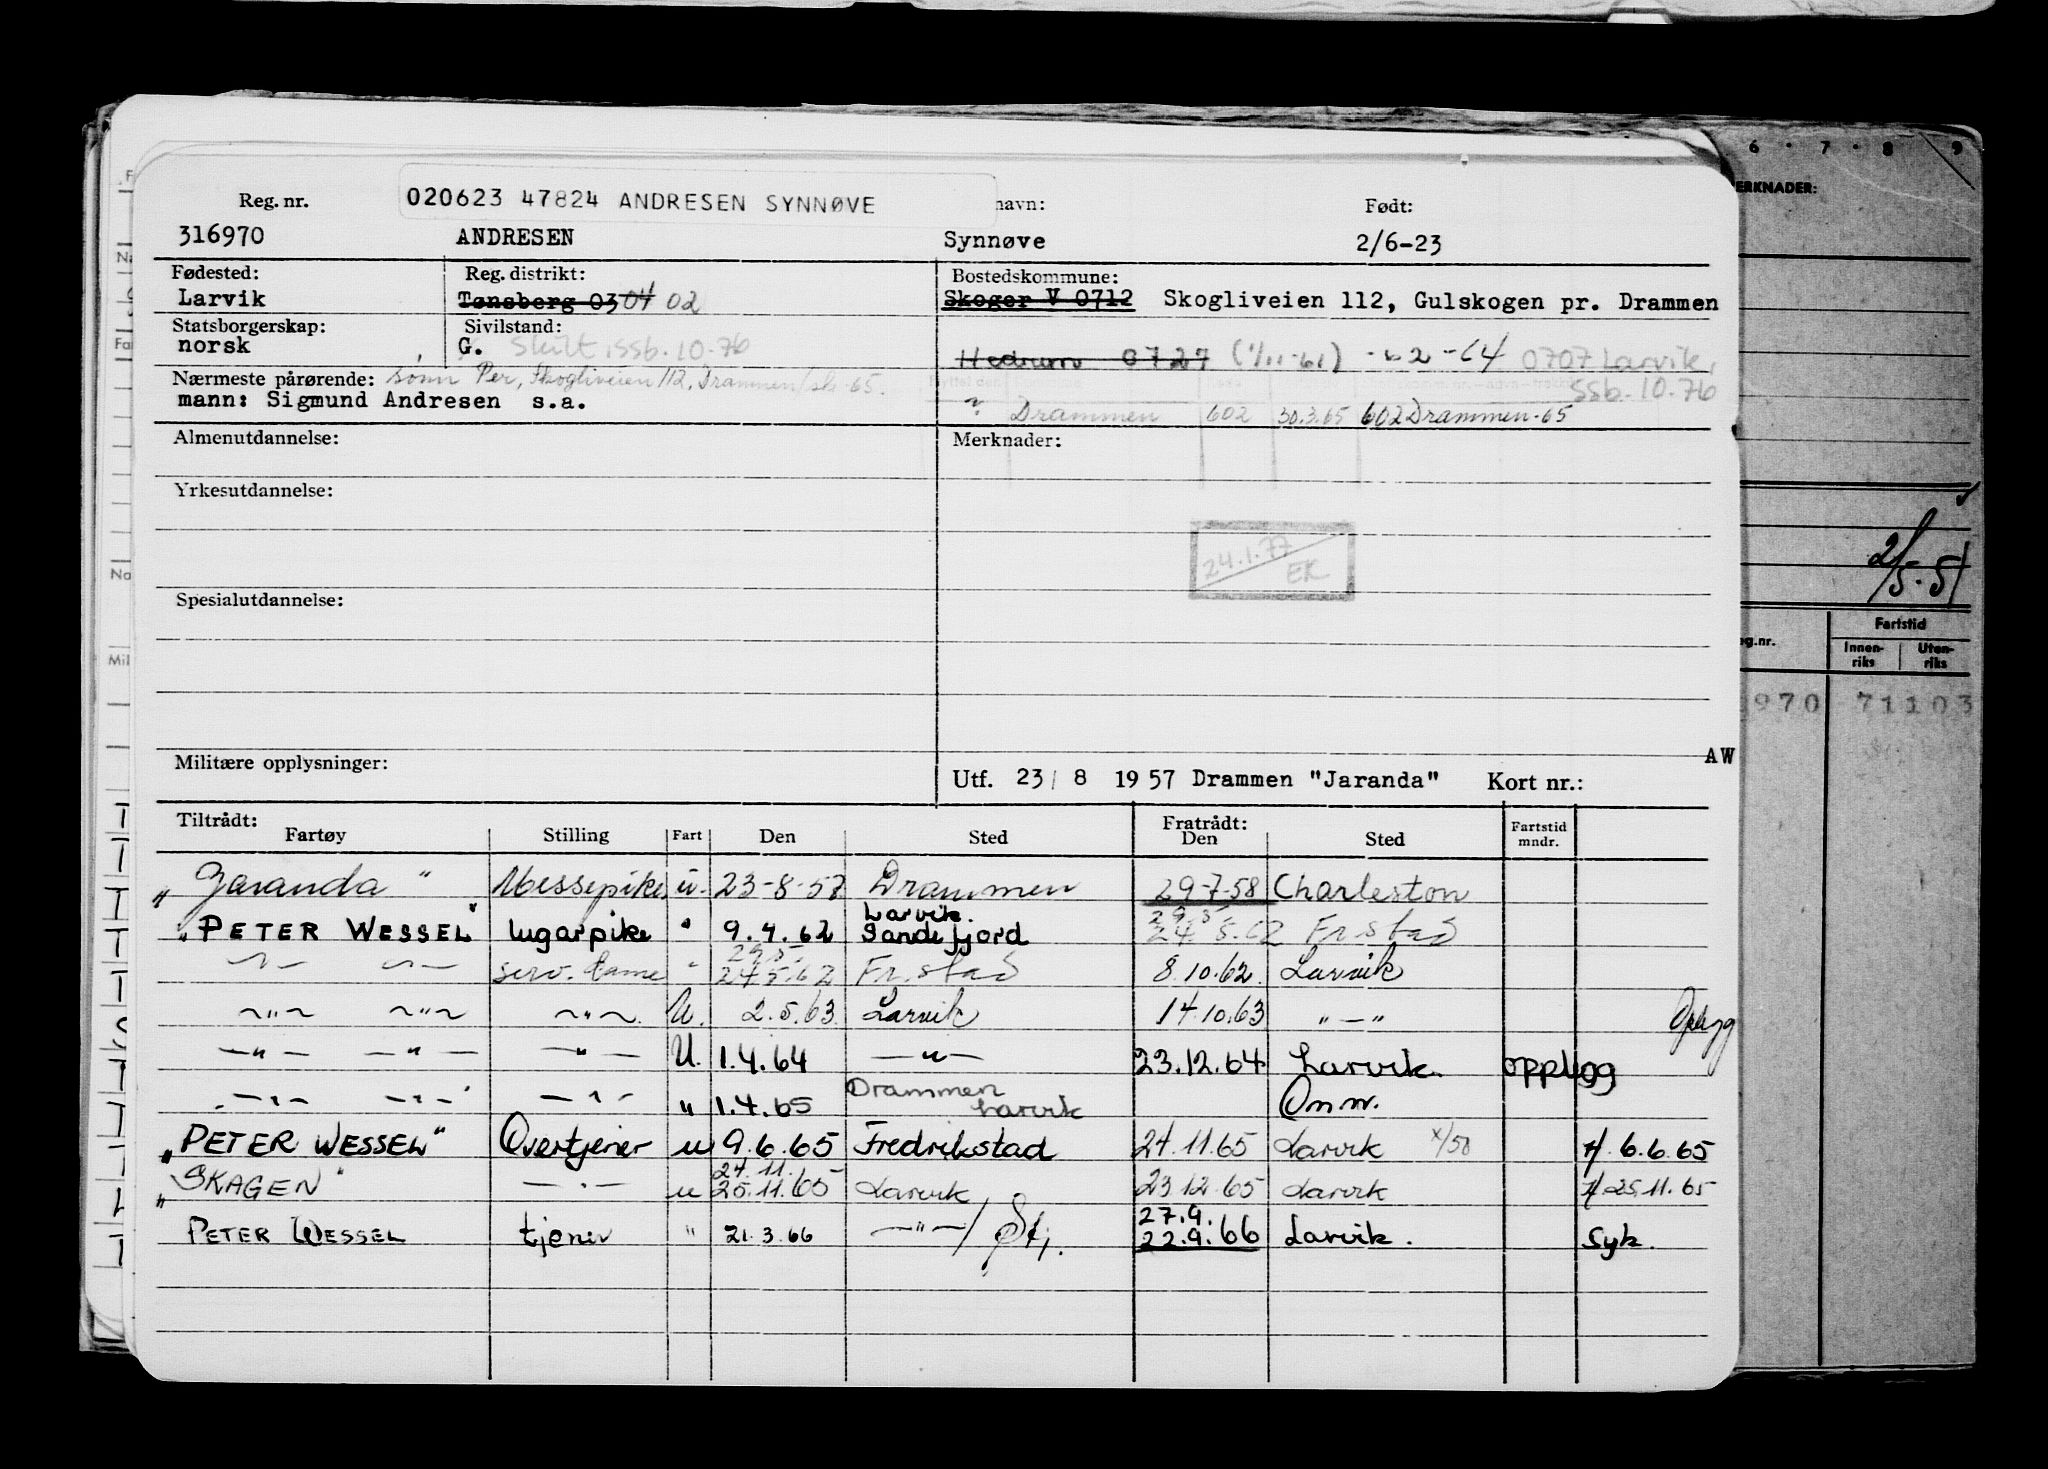 6 · 7 · 8 9
ERKNADER:
020623 47824 ANDRESEN SYNNØVE
Reg. nr. navn: Født:
316970 ANDRESEN Synnøve 2/6-23
Fødested: Reg. distrikt: Bostedskommune:
Larvik Tønsberg 03 04 02 Skoger V 0712 Skogliveien 112, Gulskogen pr. Drammen
Statsborgerskap: Sivilstand:
norsk G. Skilt, ssb. 10-76 Hedrum 0727 (1/11-61) -64 0707 Larvik,
Nærmeste pårørende: sønn Per, Skogliveien 112, Drammen ssb. 10-76
mann: Sigmund Andresen s.a. Drammen 602 30.3.65 602 Drammen-65
Almenutdannelse: Merknader:
Yrkesutdannelse:
24.1.77
EK
2/5-51
Spesialutdannelse:
Fartstid
og.nr. Innen-riks Uten-riks
970 71103
AW
Militære opplysninger: Utf. 23/ 8 1957 Drammen "Jaranda" Kort nr.:
Tiltrådt: Fratrådt:
Fartøy Stilling Fart Den Sted Den Sted Fartstid mndr.
"Jaranda" Messepike u. 23-8-57 Drammen 29-7-58 Charleston
Larvik.
"PETER WESSEL" lugarpike " 9.4.62 Sandefjord 24.5.62 Fr.stad
—"— —"— serv. dame " 24.5.62 Fr.stad 8.10.62 Larvik
—"— —"— —"— U. 2.5.63 Larvik 14.10.63 "—" Opplygg
—"— —"— —"— U. 1.4.64 —"— 23.12.64 Larvik. opplygg
Drammen
—"— —"— —"— " 1.4.65 Larvik Omm.
"PETER WESSEL" Overtjener u 9.6.65 Fredrikstad 24.11.65 Larvik x/50 6.6.65
24.11.
"SKAGEN" —"— u 25.11.65 Larvik 23.12.65 Larvik 25.11.65
27.9.
PETER WESSEL tjener " 21.3.66 —"— 22.9.66 Larvik. Syk.